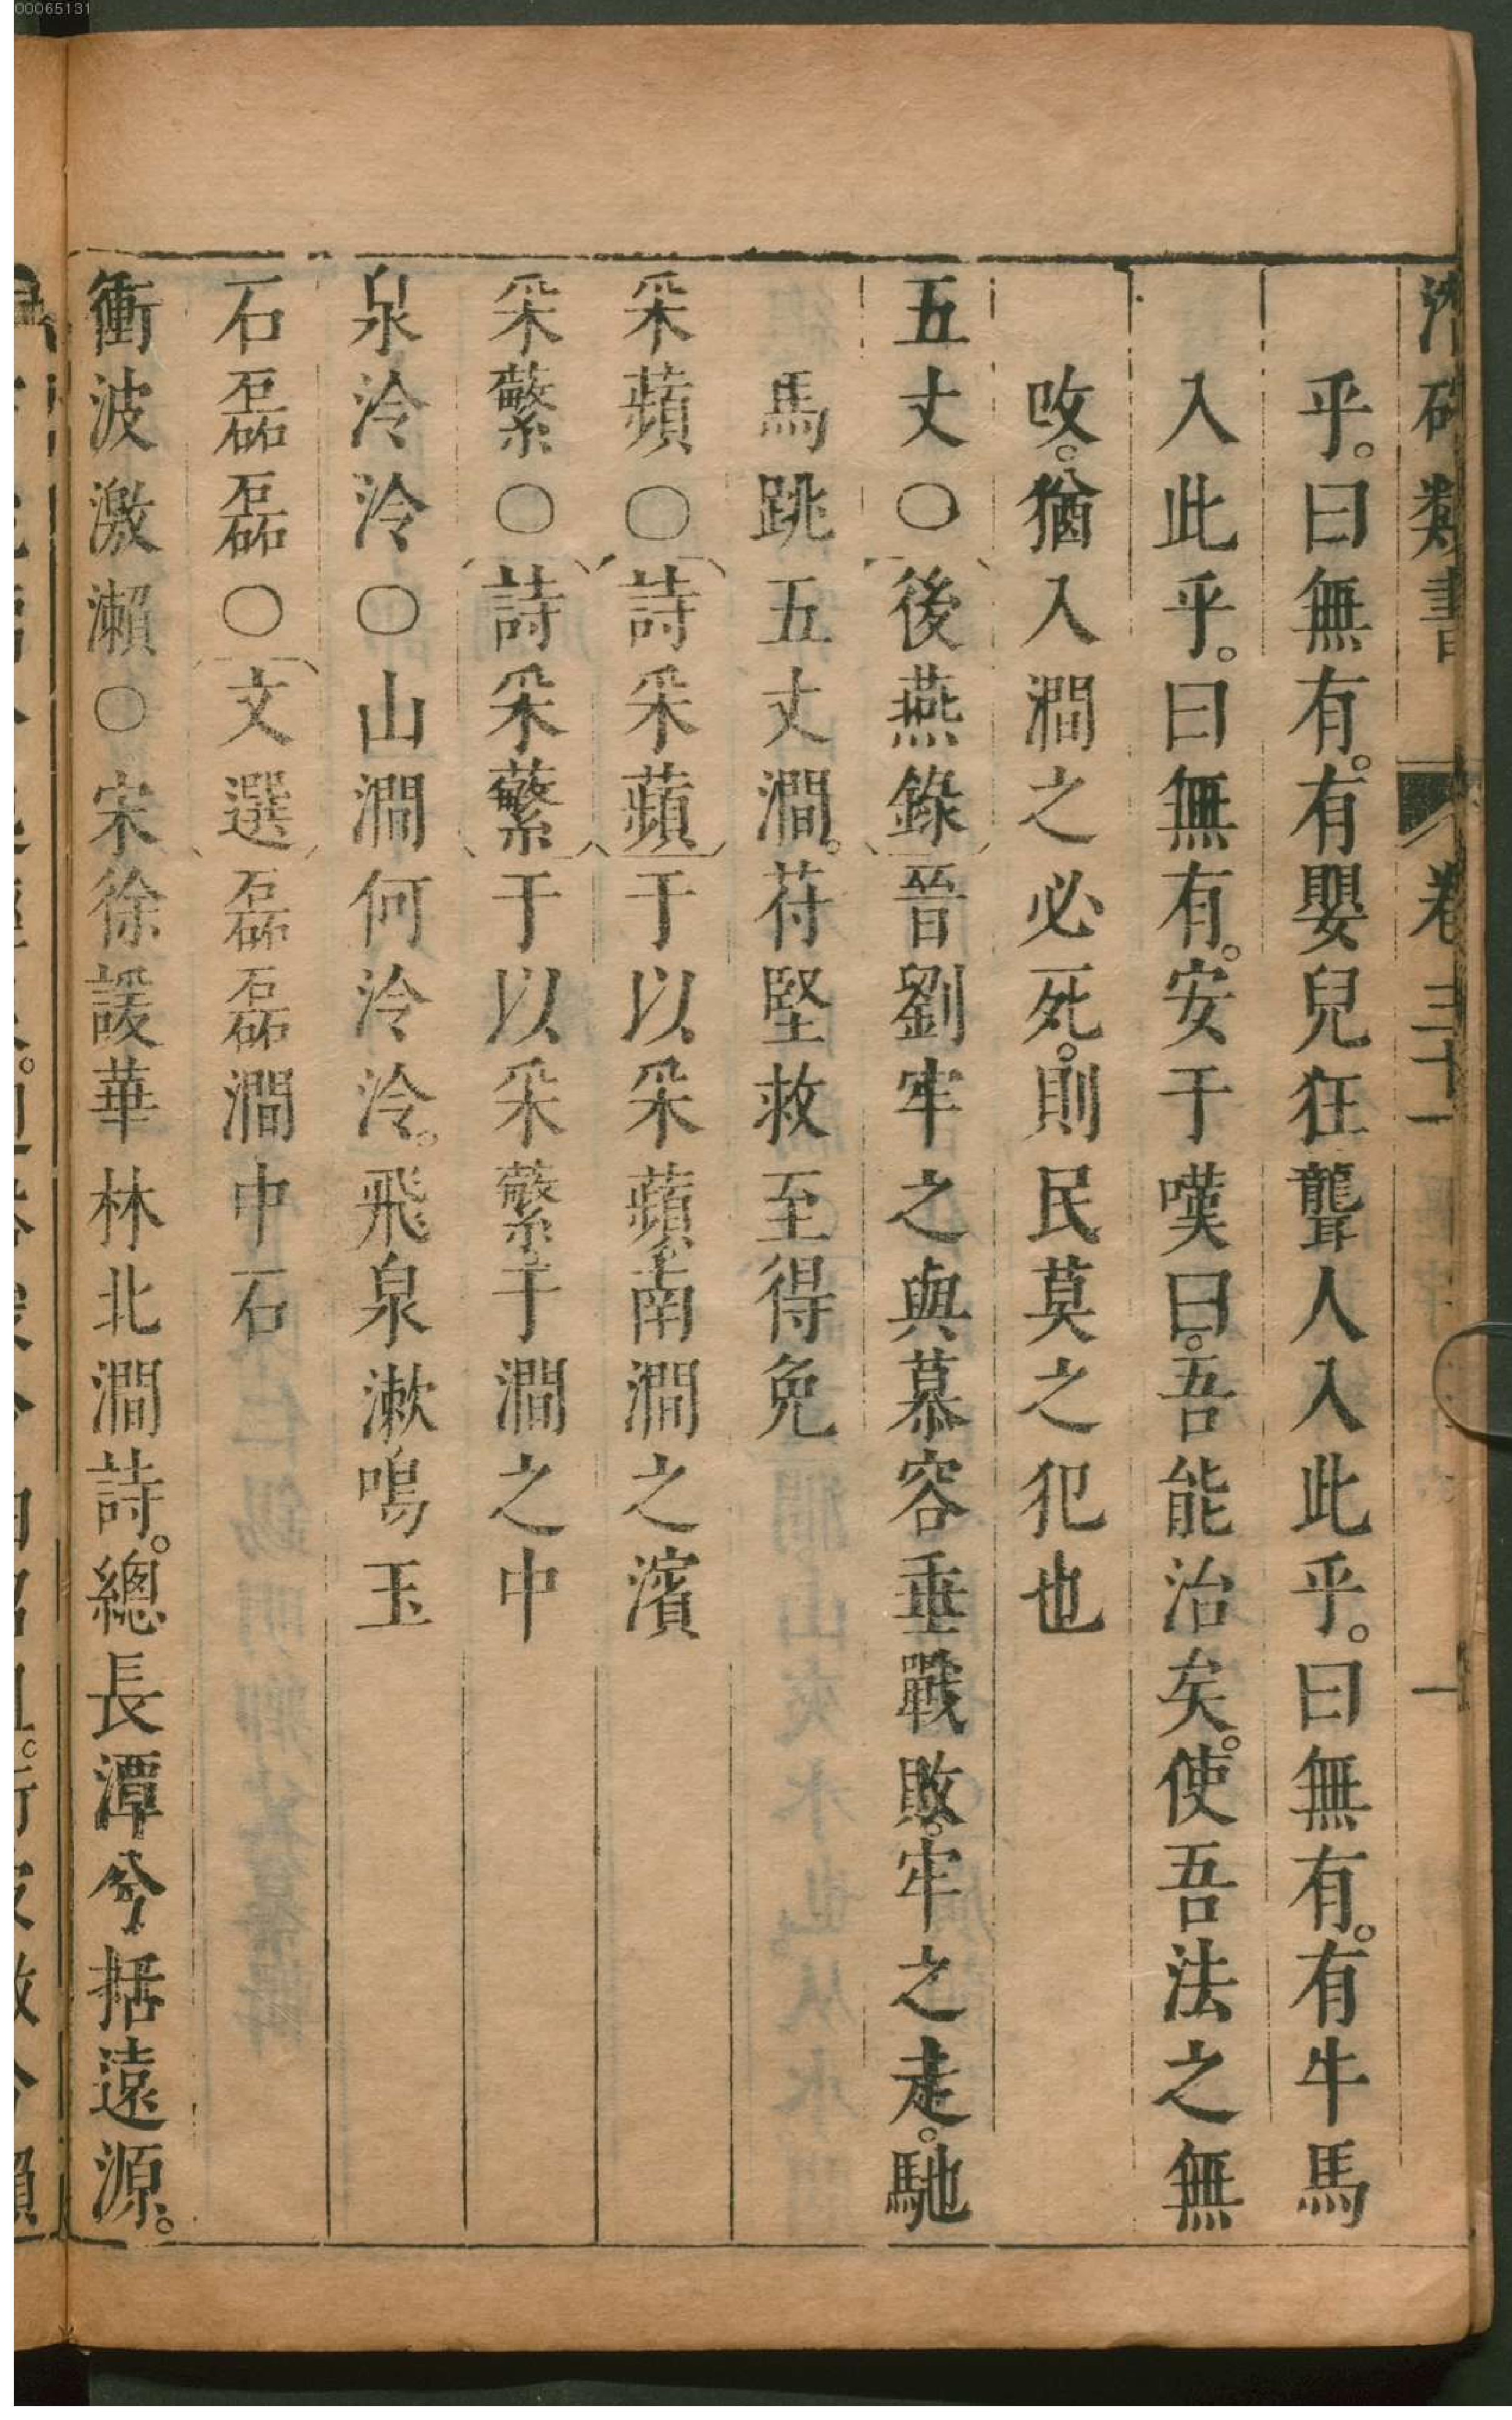 00065131
潛確類書 卷三十一 一
乎。曰無有。有嬰兒狂聾人入此乎。曰無有。有牛馬
入此乎。曰無有。安于嘆曰。吾能治矣。使吾法之無
攺。猶入澗之必死。則民莫之犯也
五丈〇後燕錄晉劉牢之與慕容垂戰敗。牢之走。馳
馬跳五丈澗。苻堅救至得免
采蘋〇詩采蘋于以采蘋南澗之濱
采蘩〇詩采蘩于以采蘩于澗之中
泉泠泠〇山澗何泠泠。飛泉漱鳴玉
石磊磊〇文選磊磊澗中石
衝波激瀨〇宋徐諼華林北澗詩。總長潭兮括遠源。